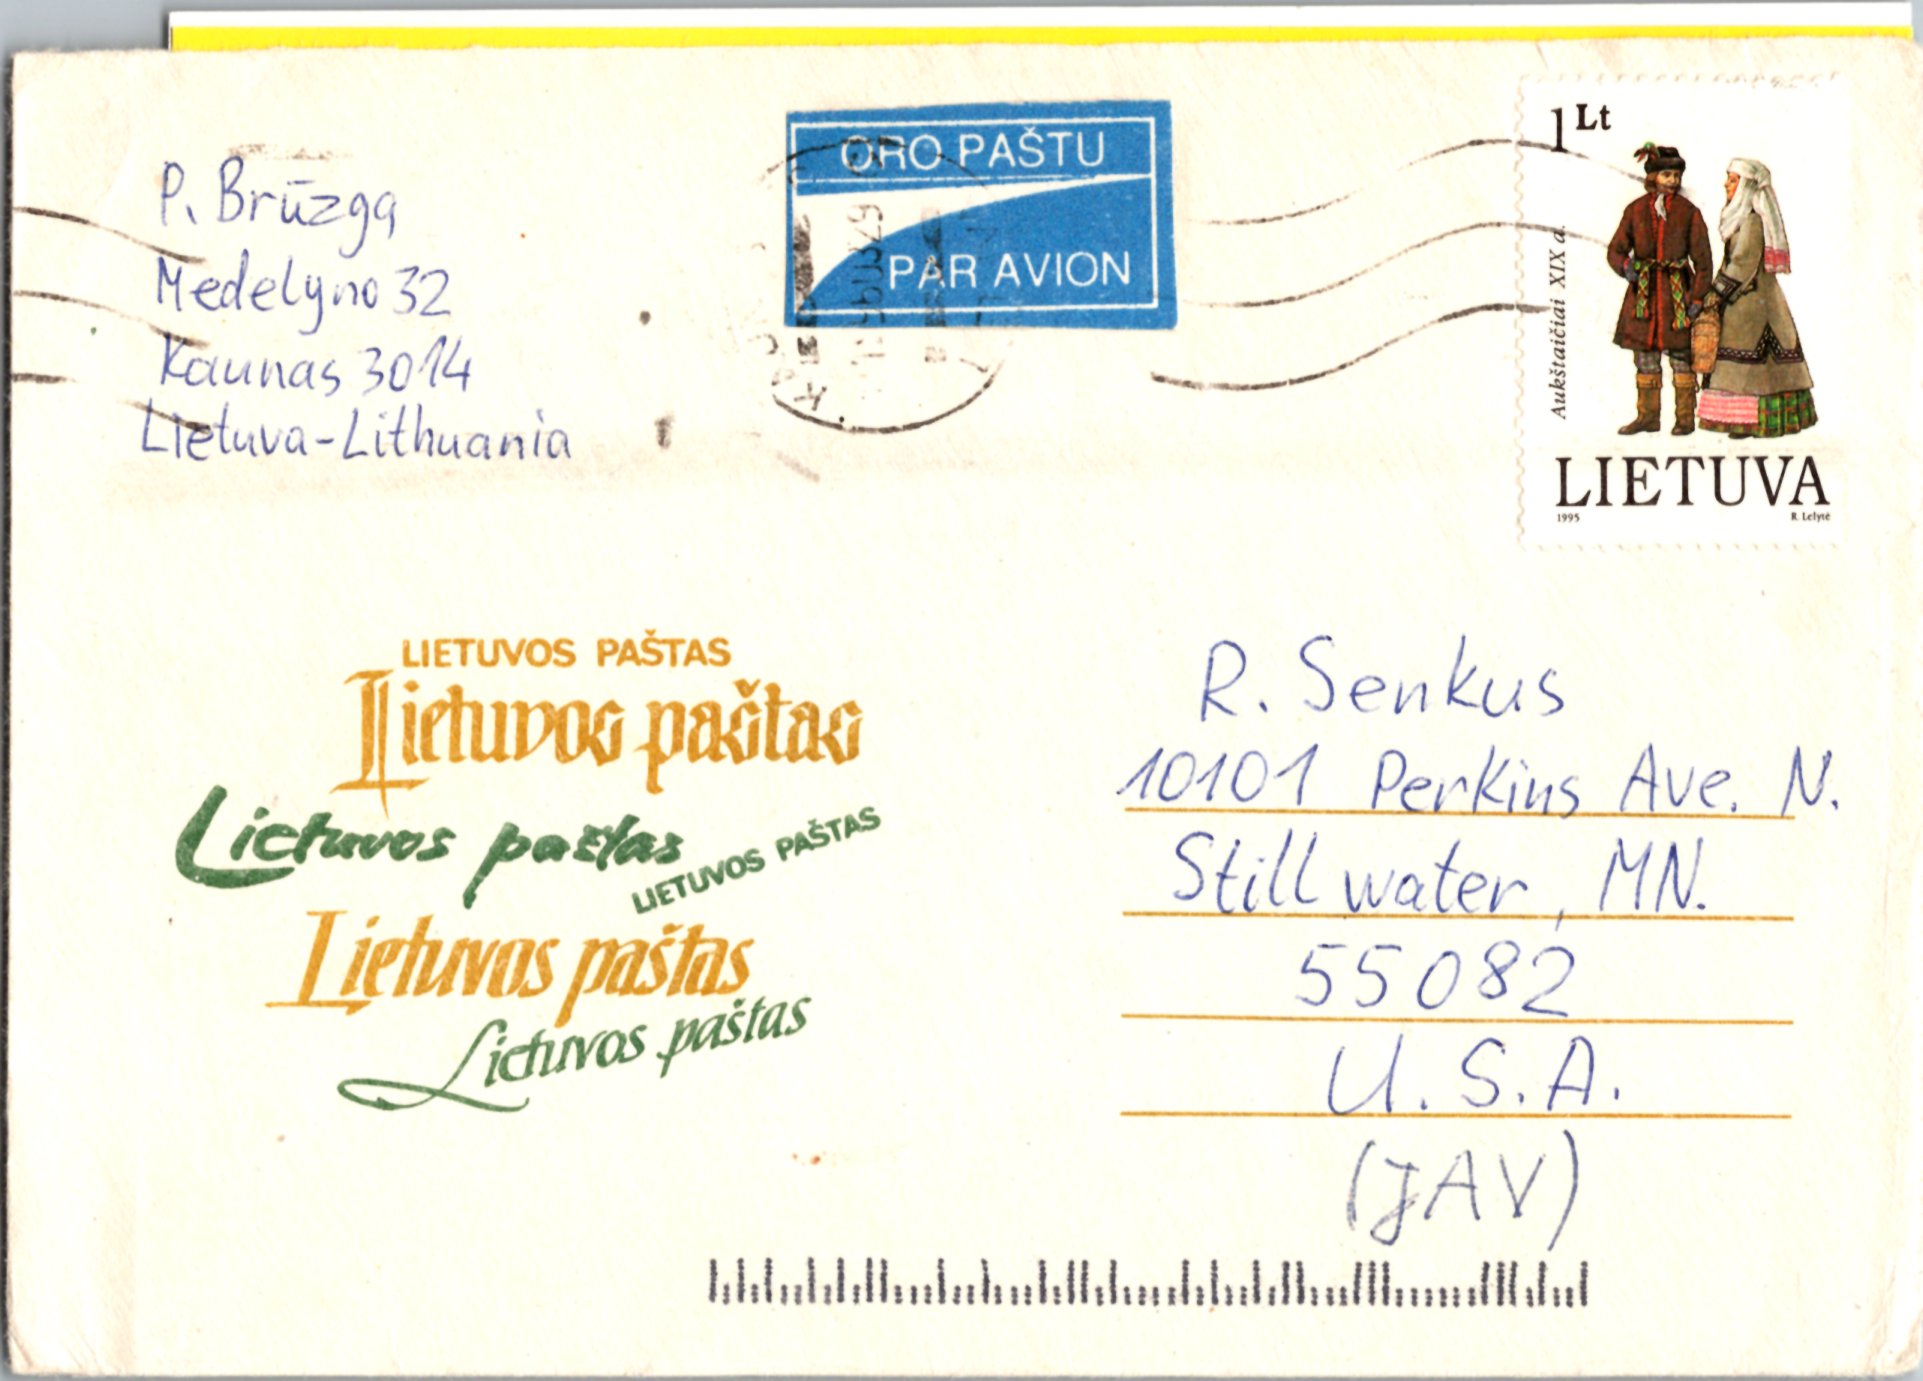 P. Brūzga
Medelyno 32
Kaunas 3014
Lietuva-Lithuania
ORO PAŠTU
PAR AVION
1 Lt
Aukštaičiai XIX a.
LIETUVA
1995 R. Lelytė
LIETUVOS PAŠTAS
Lietuvos paštas
Lietuvos paštas
LIETUVOS PAŠTAS
Lietuvos paštas
Lietuvos paštas
R. Senkus
10101 Perkins Ave. N.
Stillwater, MN.
55082
U.S.A.
(JAV)